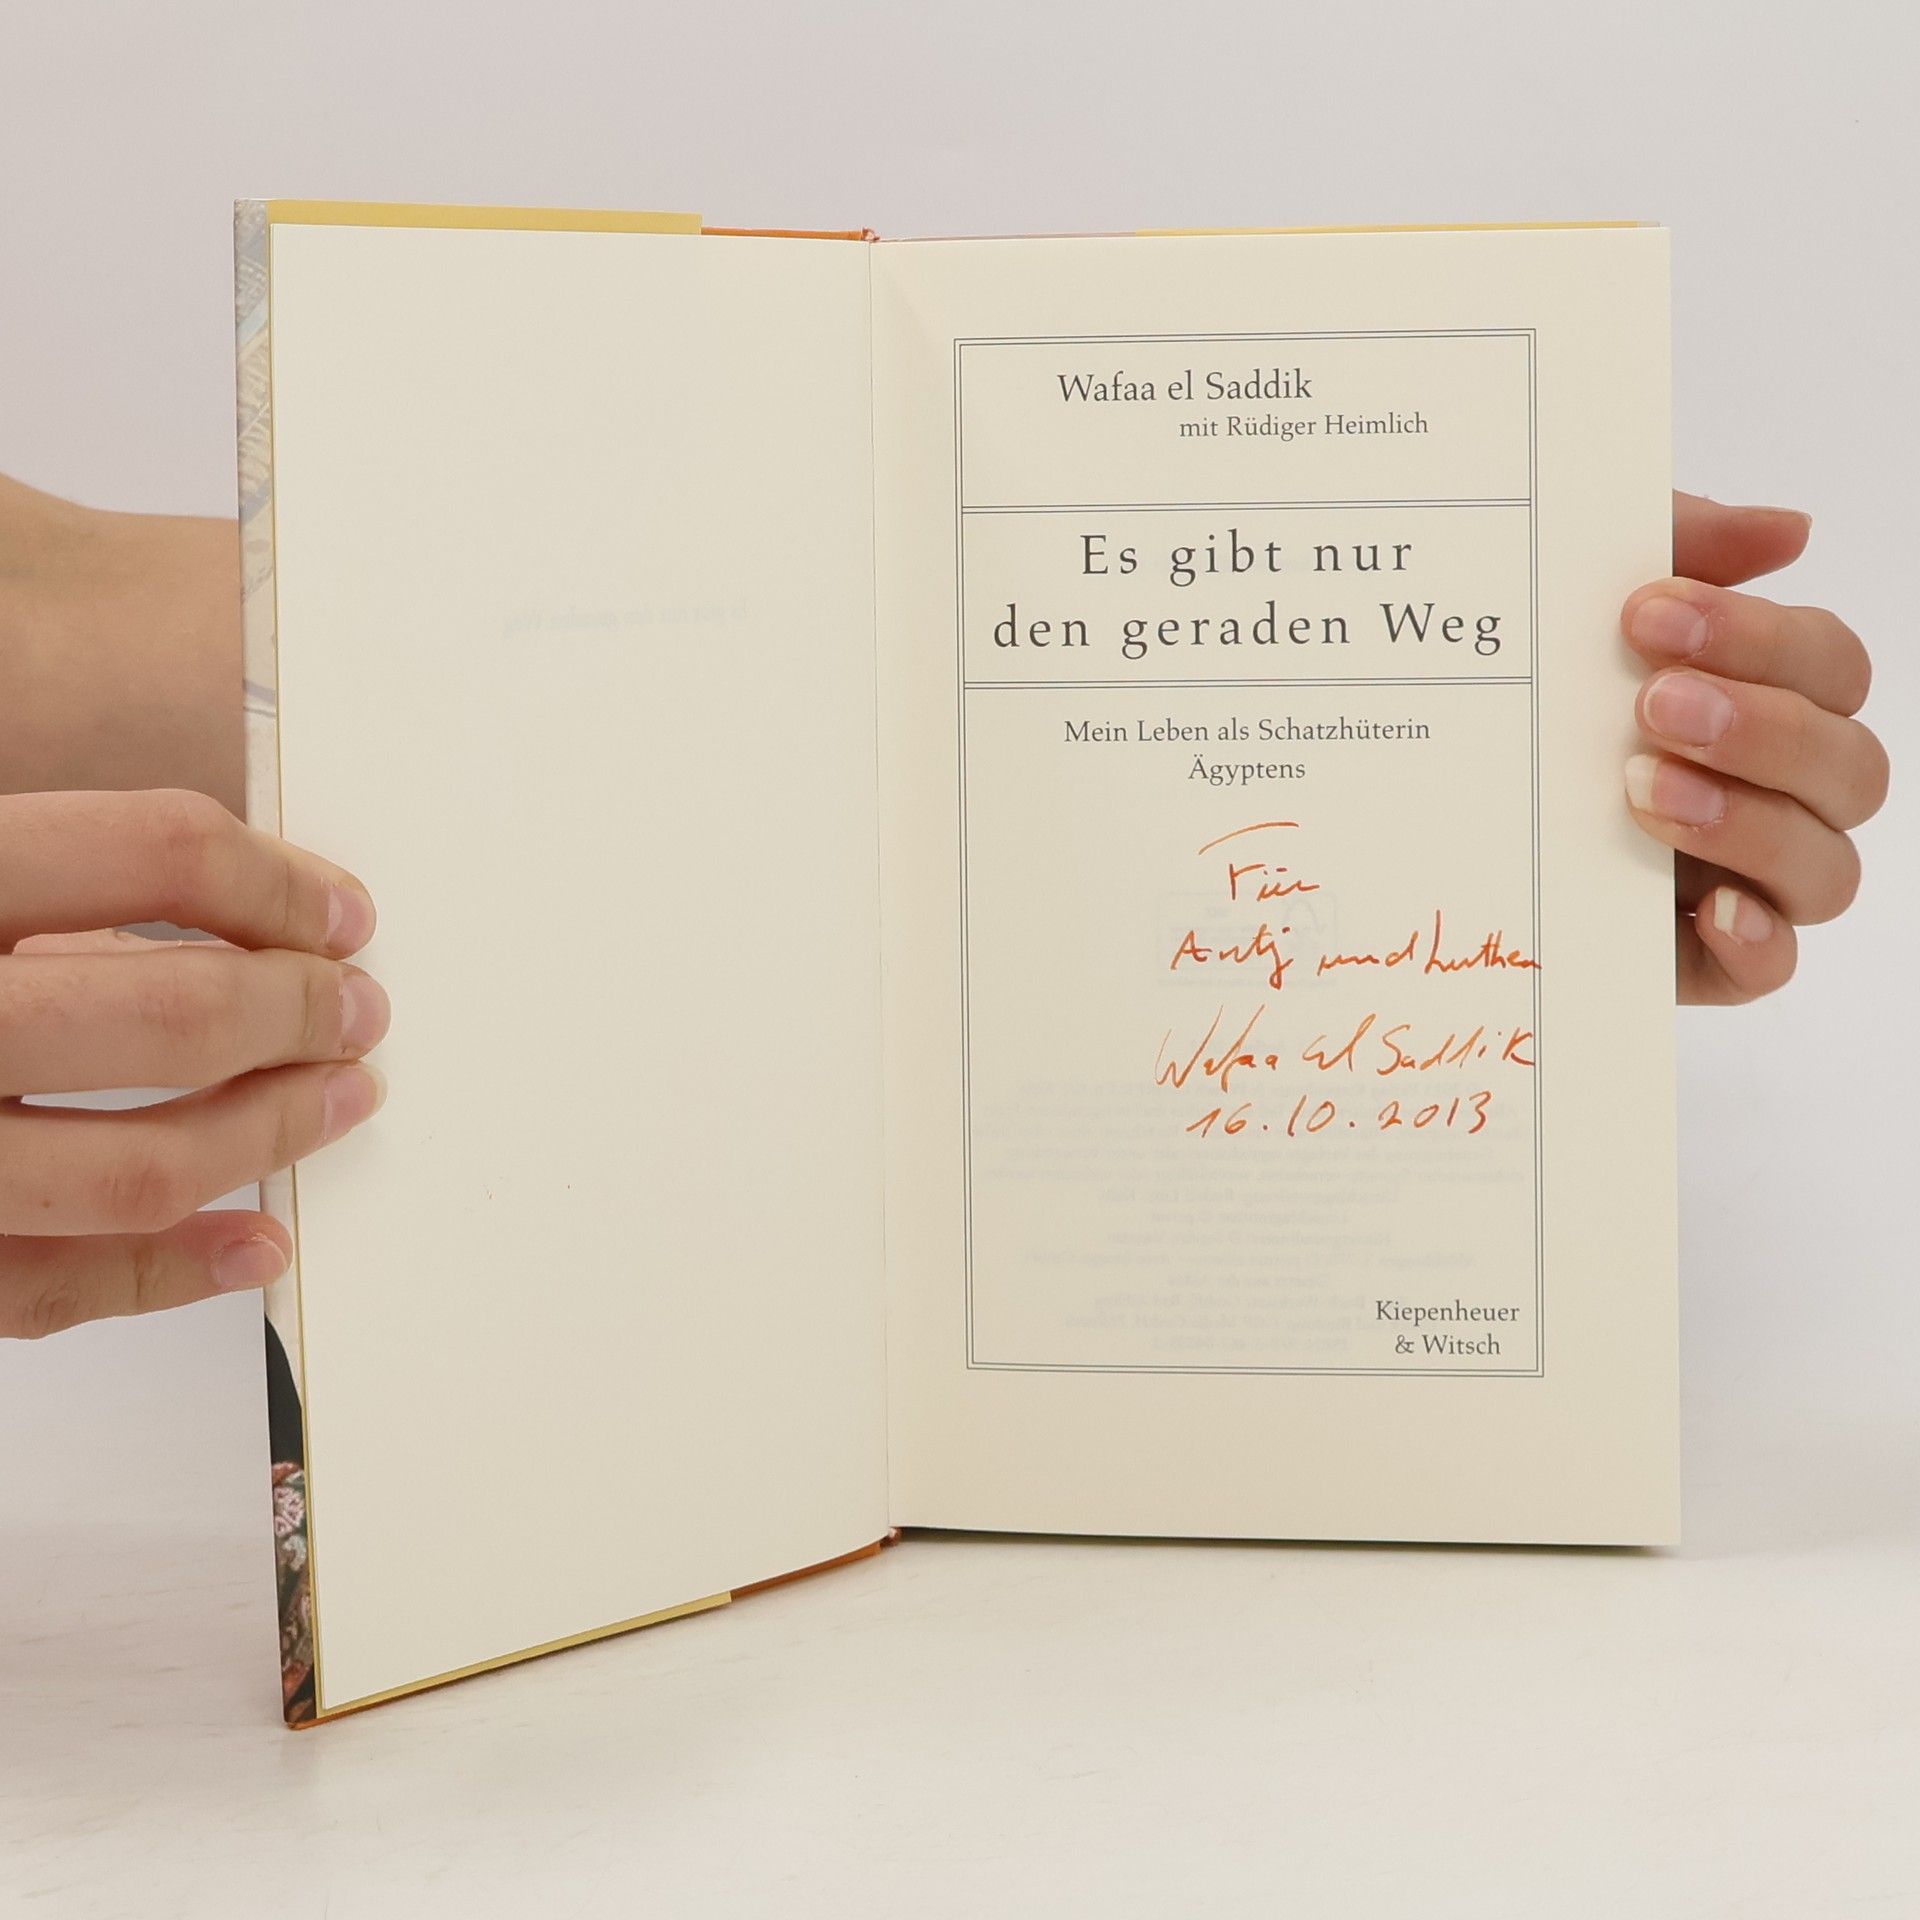 Wafaa el Saddik
mit Rüdiger Heimlich
Es gibt nur
den geraden Weg
Mein Leben als Schatzhüterin
Ägyptens
Für
Antj und Luther
Wafaa El Saddik
16.10.2013
Kiepenheuer
& Witsch